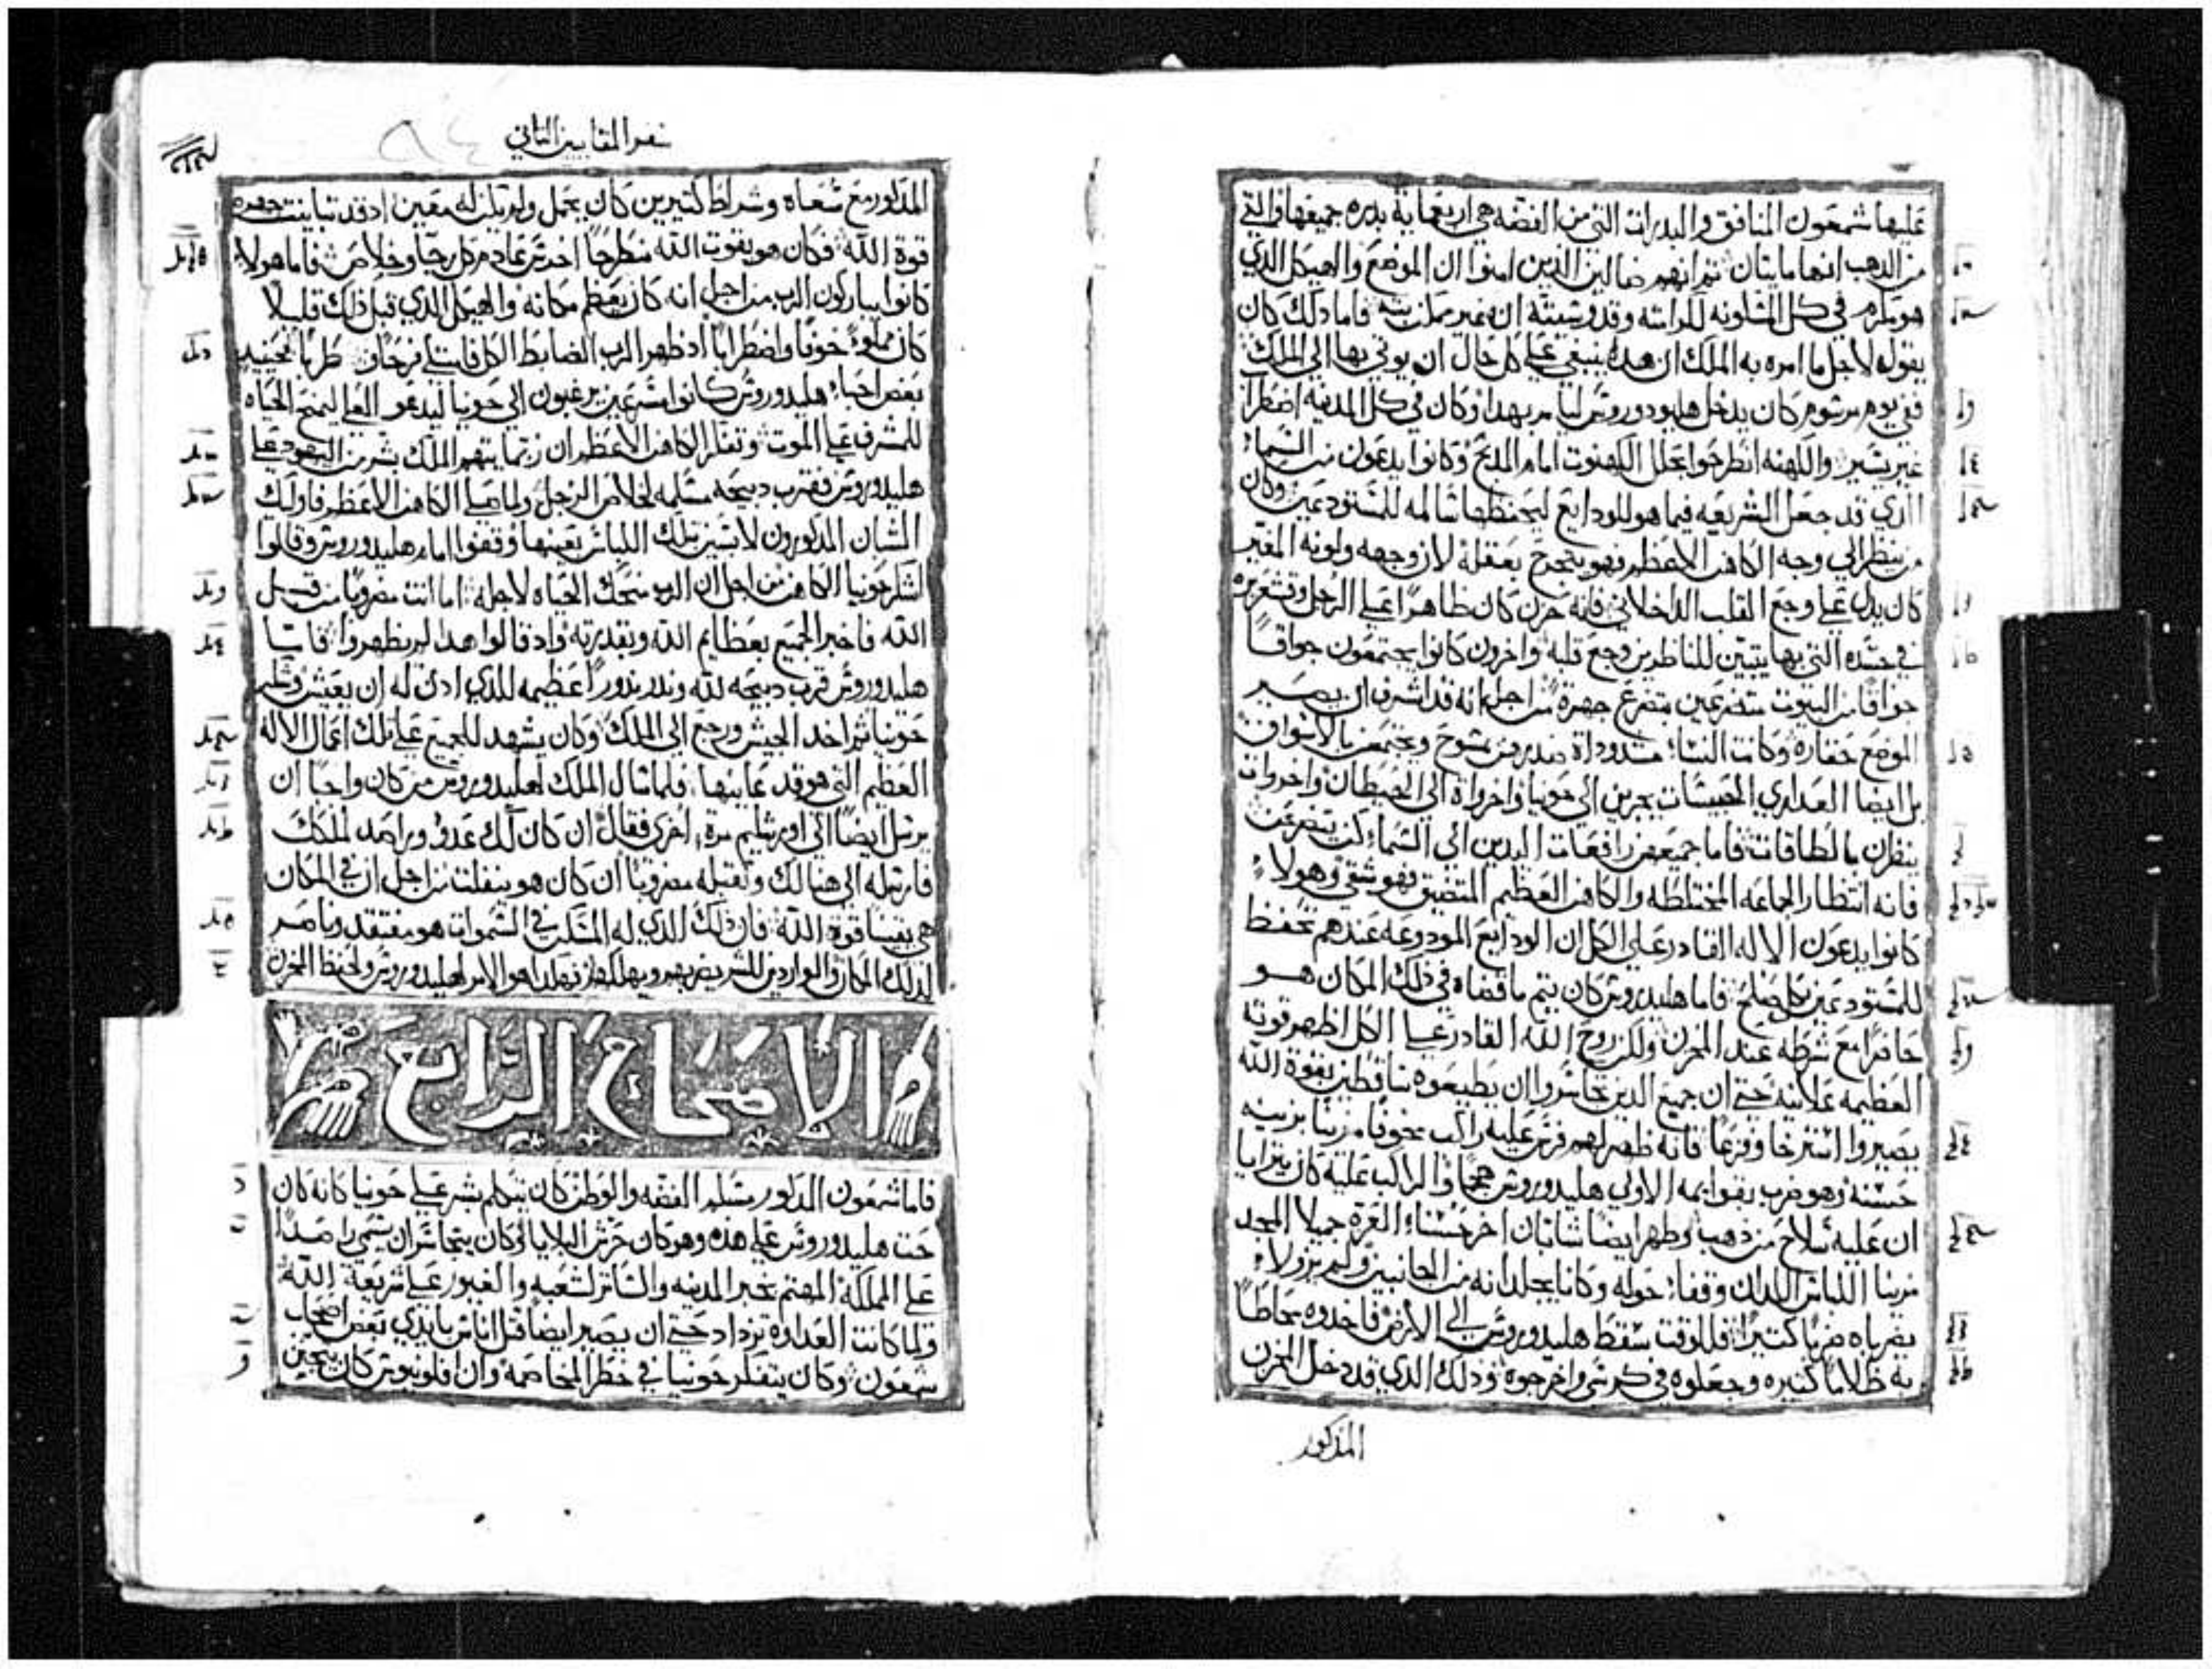 عليها شمعون المنافق والبدرات التي من الفضه هي اربعماية بدره جميعها والتي
من الدهب انها مايتان ثم انهم ضالين الذين امنوا ان الموضع والهيكل الذي
هو مكرم في كل المسكونه لكرامته وقدوسيته ان غير ممكن فاما دلك كان
يقوله لاجل ما امره به الملك ان هذه ينبغي علي كل حال ان يوتي بها الي الملك
ففي يوم مرسوم كان يدخل هليودوروس ليامر بهدا وكان في كل المدينه اضطرابا
غير يسير والكهنه انطرحوا بحلل الكهنوت امام المدبح وكانوا يدعون من السماء
الدي قد جعل الشريعه فيما هو للودايع ليحفظها سالمه للمستودعين وكان
من ينظر الي وجه الكاهن الاعظم فهو ينجرح بعقله لان وجهه ولونه المغير
كان يدل علي وجع القلب الداخلاني فانه حزن كان ظاهرا علي الرجل وقشعريره
في جسده التي بها يتبين للناظرين وجع قلبه واخرون كانوا يجتمعون جواقا
جواقا من البيوت متضرعين بتضرع جهرة من اجل انه قد اشرف ان يصير
الموضع حقاره وكانت النساء مشدوداة صدورهن بمسوح ويجتمعن بالاسواق
بل ايضا العداري الحبيسات يجرين الي حونيا واخرواة الي الحيطان واخروات
ينظرن بالطاقات فاما جميعهن رافعات اليدين الي السماء كن يتضرعن
فانه انتظار الجماعه المختلطه والكاهن العظيم المتضيق فهو شقي وهولاء
كانوا يدعون الاله القادر علي الكل ان الودايع المودوعه عندهم تحفظ
للمستودعين بكل صلح فاما هليدوروس كان يتم ما قضاه في ذلك المكان هو
حاضرا مع شرطه عند المخزن ولكن روح الله القادر علي الكل اظهر قوته
العظيمه علانيه حتي ان جميع الدين تجاسروا ان يطيعوه ساقطين بقوة الله
يصيروا استرخا وفزعا فانه ظهر لهم فرس عليه راكب مخوفا مزينا بزينه
حسنه وهو ضرب بقوايمه الاولي هليدوروس هجما والراكب عليه كان يترايا
ان عليه سلاح من ذهب وظهر ايضا شابان اخر حسناء الغرة جميلا المجد
مزينا اللباس اللدان وقفاء حوله وكانا يجلدانه من الجانبين ولم يزولاء
يضرباه ضربا كتيرا فللوقت سقط هليدوروس الي الارض فاخدوه محاطا
به ظلاما كتيره وجعلوه في كرسي واخرجوه وذلك الذي قد دخل المخزن
المذكور
سفر المقابيين التاني
المذكور مع سعاه وشراط كتيرين كان يحمل ولم يكن له معين اد قد تباينت جهره
قوة الله فكان هو بقوت الله منطرحا اخرس عادم كل رجا وخلاص فاما هولاء
كانوا يباركون الرب من اجل انه كان يعظم مكانه والهيكل الذي قبل ذلك قليلا
كان مملوء خوفا واضطرابا اد ظهر الرب الضابط الكل فامتلي فرحا وطربا فحينيد
بعض احباء هليدوروس كانوا مسرعين يرغبون الي حونيا ليدعو العلي ليمنح الحياه
للمشرف علي الموت وتفكر الكاهن الاعظم ان ربما يتهم الملك بشر من اليهود علي
هليدوروس فقرب دبيحه مسلمه لخلاص الرجل ولما صلي الكاهن الاعظم فاولك
الشبان المذكورون لابسين تلك اللباس بعينها وقفوا امام هليدوروس وقالوا
اشكر حونيا الكاهن من اجل ان الرب منحك الحياه لاجله اما انت مضروبا من قبل
الله فاخبر الجميع بعظايم الله وبقدرته واد قالوا هدا لم يظهروا فاما
هليدوروس قرب دبيحه لله وندر ندورا عظيمه للدي ادن له ان يعيش وشكر
حونيا ثم اخد الجيش ورجع الي الملك وكان يشهد للجميع علي تلك اعمال الاله
العظيم التي هو قد عاينها فلما سال الملك لهليدوروس من كان واجبا ان
يرسل ايضا الي اورشليم مرة اخري فقال ان كان لك عدو وراصد لملكك
فارسله الي هنالك وتقبله مضروبا ان كان هو ينفلت من اجل ان في المكان
هي يقينا قوة الله فان ذلك الدي له المسكن في السموات هو مفتقد وناصر
لدلك المكان والواردين للشر يضربهم ويهلكهم فهدا هو الامر لهليدوروس ولحفظ المخزن
الاصحاح الرابع
فاما شمعون المدكور مسلم الفضه والوطن كان يتكلم بشر علي حونيا كانه كان
حت هليدوروس علي هده وهو كان حرش البلايا وكان يتجاسر ان يسمي راصدا
علي المملكة المهتم بخير المدينه والساتر لشعبه والغيور علي شريعة الله
ولما كانت العداوة تزداد حتي ان يصير ايضا قتل اناس بايدي بعض اصحاب
شمعون وكان يتفكر حونيا في خطر المخاصمه وان افلونيوس كان يتجنن